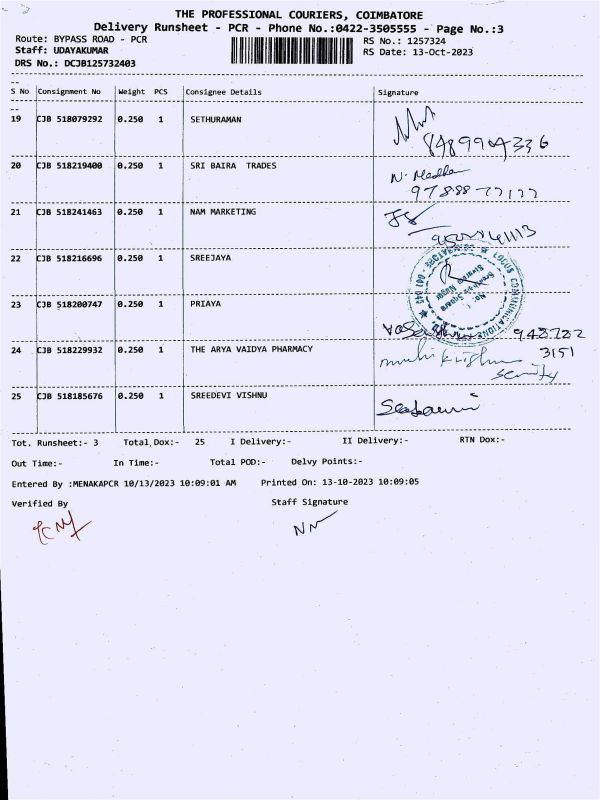 THE PROFESSIONAL COURIERS, COIMBATORE
Delivery Runsheet - PCR - Phone No.:0422-3505555 - Page No.:3
Route: BYPASS ROAD - PCR
RS No.: 1257324
Staff: UDAYAKUMAR
RS Date: 13-Oct-2023
DRS No.: DCJB125732403
S No Consignment No Weight PCS Consignee Details Signature
19 CJB 518079292 0.250 1 SETHURAMAN
8489904336
20 CJB 518219400 0.250 1 SRI BAIRA TRADES
97888 77177
21 CJB 518241463 0.250 1 NAM MARKETING
22 CJB 518216696 0.250 1 SREEJAYA
LOGUS COMMUNICATIONS
23 CJB 518200747 0.250 1 PRIAYA
948782
3151
24 CJB 518229932 0.250 1 THE ARYA VAIDYA PHARMACY
25 CJB 518185676 0.250 1 SREEDEVI VISHNU
Tot. Runsheet:- 3 Total Dox:- 25 I Delivery:- II Delivery:- RTN Dox:-
Out Time:- In Time:- Total POD:- Delvy Points:-
Entered By :MENAKAPCR 10/13/2023 10:09:01 AM Printed On: 13-10-2023 10:09:05
Verified By Staff Signature